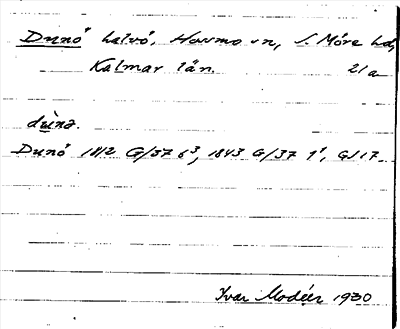 Dunö halvö, Hossmo sn, S. Möre hd,
Kalmar län. 21a
dùnə.
Dunö 1812 G/37 6³, 1843 G/37 1¹, G/17.
Ivar Modéer 1930